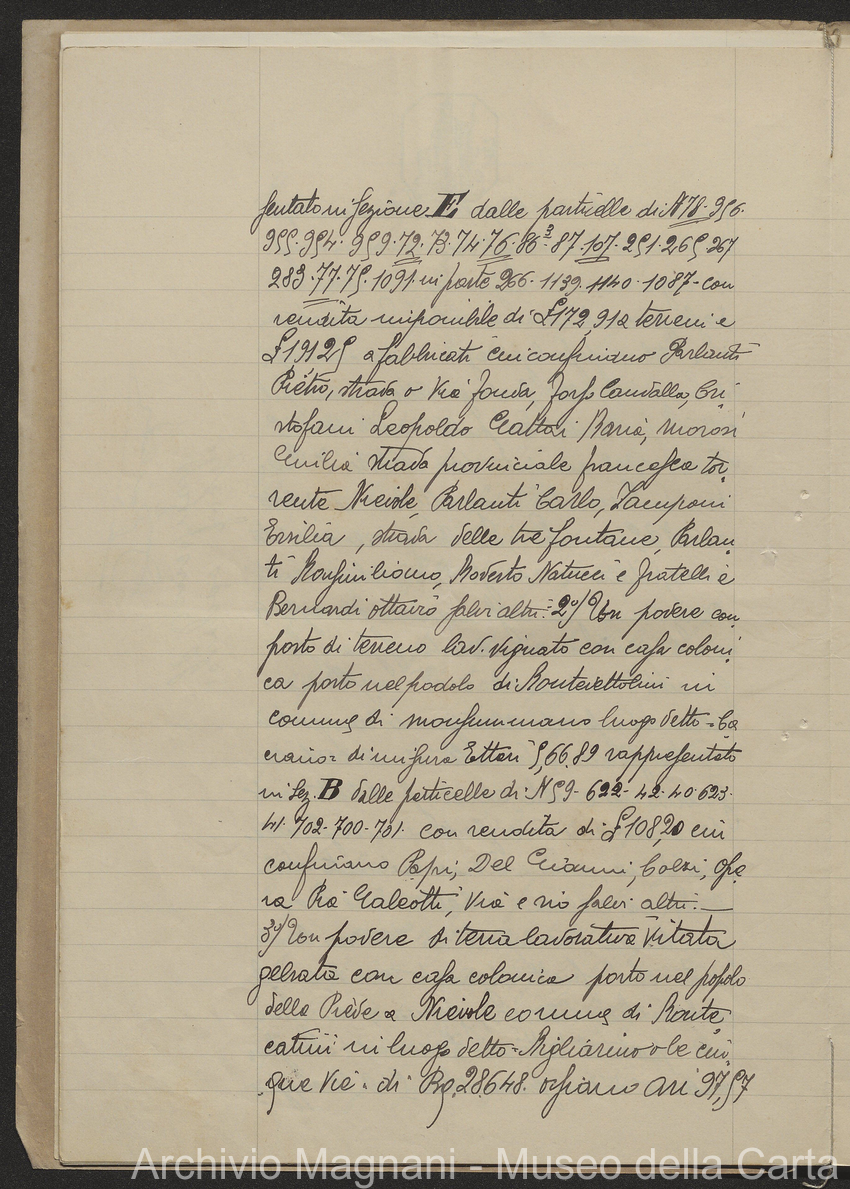 sentato in sezione E dalle particelle di N 78. 956.
955. 954. 959. 72. 73. 74. 76. 86 3. 87. 107. 251. 265. 267
283. 77. 75. 1091. in parte 266. 1139. 1140. 1087 - con
rendita imponibile di £ 172,912 terreni e
£ 191 25 a fabbricati cui confinano Parlanti
Pietro, strada o Via fonda, Candalla, Cri
stofani Leopoldo Maria, Morosi
Emilia strada provinciale francesca tor
rente Nievole, Parlanti Carlo, Zamponi
Ersilia, strada delle tre fontane, Parlan
ti Massimiliano, Modesto Natucci e fratelli e
Bernardi ottavio salvi altri. 2°) Un podere com
posto di terreno lav. vignato con casa coloni
ca posto nel popolo di Montevettolini in
comune di monsummano luogo detto = Ca
= di misura Ettari 5,66.89 rappresentato
in sez. B dalle particelle di N 59 - 622 - 42 - 40 - 623.
41. 702 - 700 - 701. con rendita di £ 108,20 cui
confinano Papi, Del Gianni, Colzi, Ope
ra Pia Galeotti, Via e rio salvi altri. —
3°) Un podere di terra lavorativa vitata
gelsata con casa colonica posto nel popolo
della Pieve a Nievole comune di Monte
catini in luogo detto = Migliarino o le cin
que Vie = di Bq. 28648. ossiano Ari 97,57
Archivio Magnani - Museo della Carta